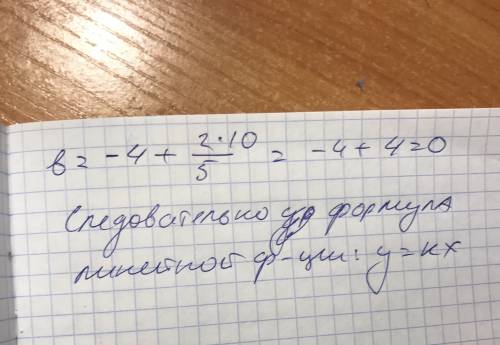 в = -4 + 2·10/5 = -4 + 4 = 0
Следовательно формула
линейной ф-ции: y=kx